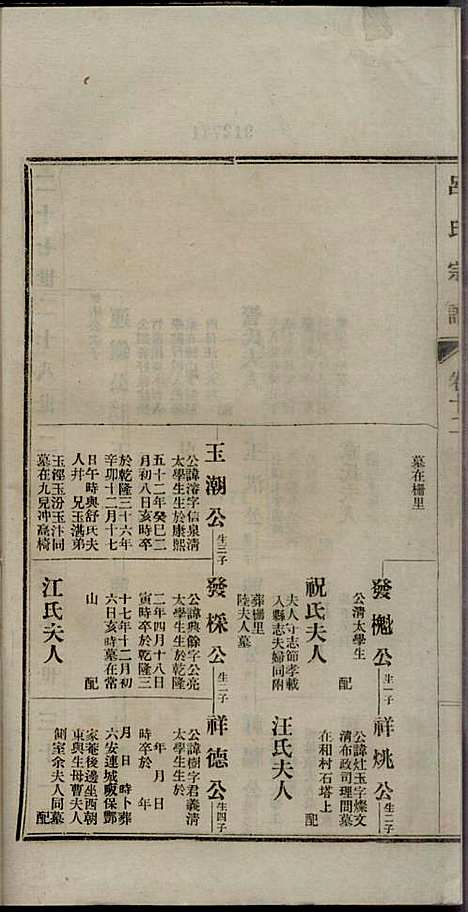 呂氏宗譜
卷十二
墓在柵里
發櫆公生一子
公清太學生
配
祝氏夫人
夫人守志節孝載
入縣志夫婦同附
葬柵里
陸夫人墓
祥姚公生二子
公諱灶玉字燦文
清布政司理問墓
在和村石塔上
配
汪氏夫人
玉潮公生三子
公諱濬字信泉清
太學生生於康熙
五十二年癸巳二
月初八日亥時卒
於乾隆三十六年
辛卯十二月十七
日午時與舒氏夫
人幷 兄玉滿弟
玉溼玉汾玉汴同
墓在九兒冲高椅
發棌公生二子
公諱興餘字公亮
太學生生於乾隆
二年四月十八日
寅時卒於乾隆三
十七年十二月初
六日亥時墓在常
山 配
江氏夫人
祥德公生四子
公諱樹字君義清
太學生生於
年 月 日
時卒於 年
月 日 時卜葬
六安連城畈保鄧
家菴後邊坐西朝
東與生母曹夫人
側室余夫人同墓
配